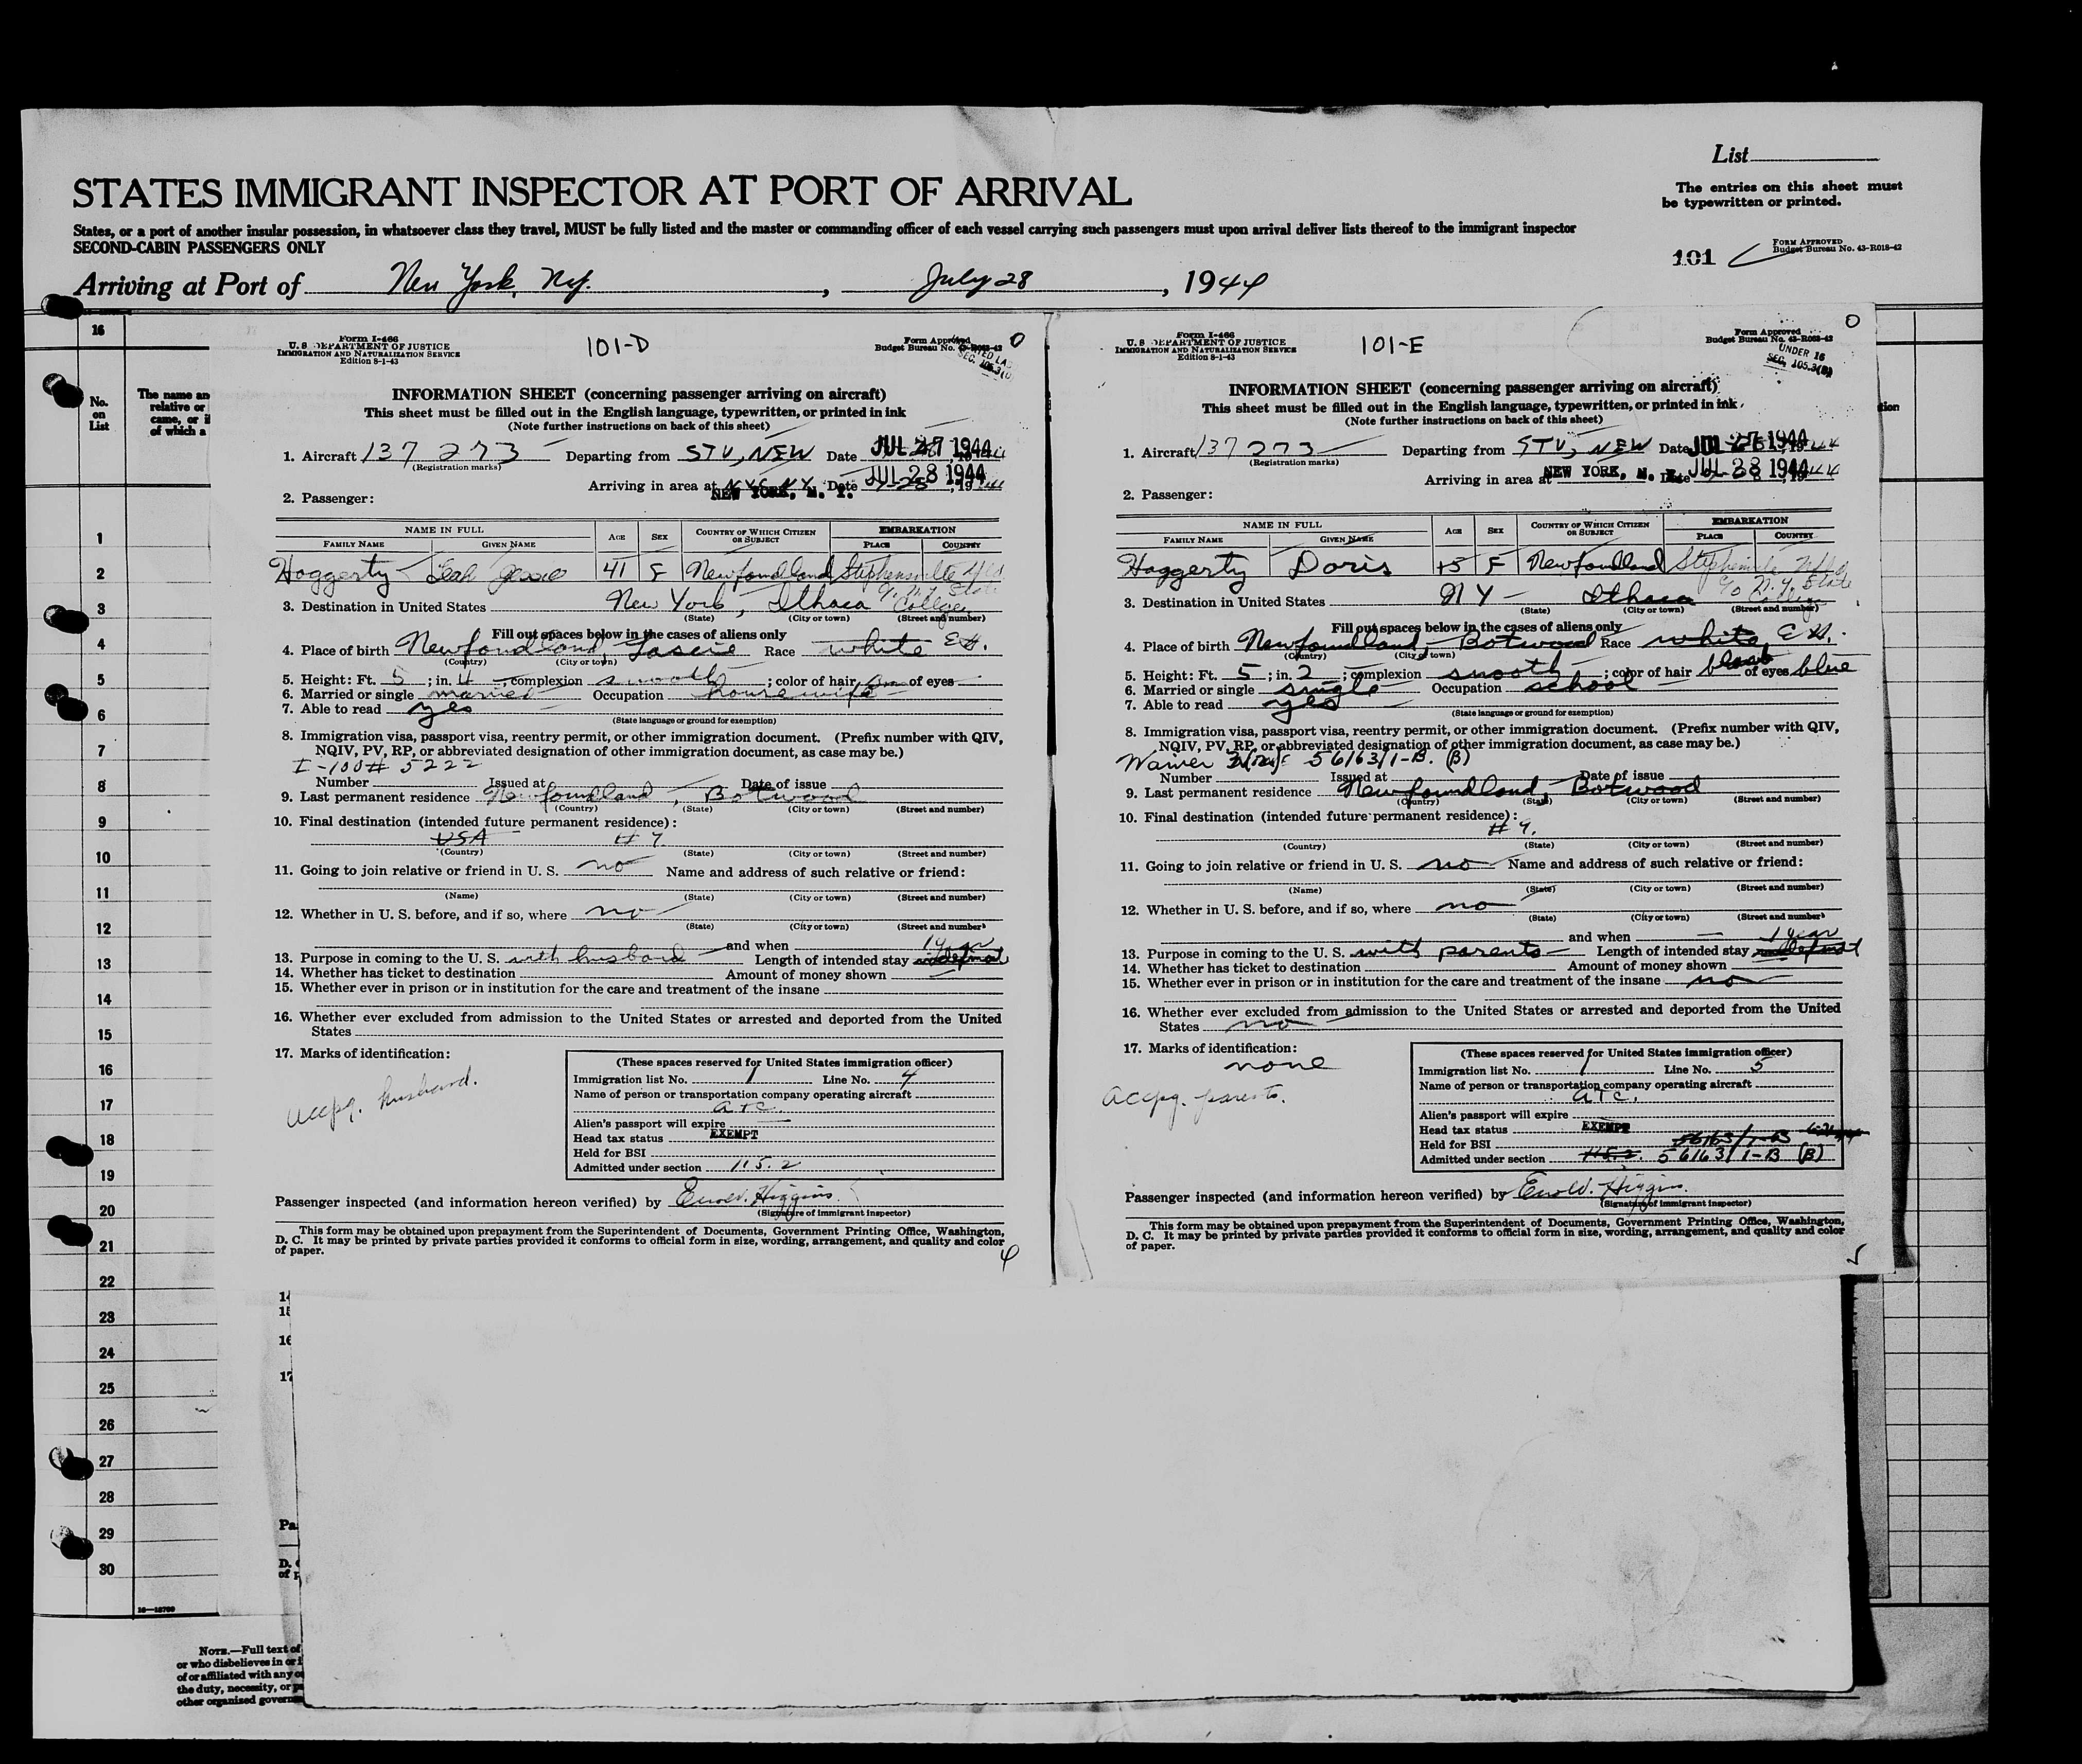 List
STATES IMMIGRANT INSPECTOR AT PORT OF ARRIVAL
The entries on this sheet must
be typewritten or printed.
States, or a port of another insular possession, in whatsoever class they travel, MUST be fully listed and the master or commanding officer of each vessel carrying such passengers must upon arrival deliver lists thereof to the immigrant inspector
SECOND-CABIN PASSENGERS ONLY
101
FORM APPROVED
Budget Bureau No. 43-R018-42
Arriving at Port of New York, N.Y. , July 28 , 1944
16
No.
on
List
The name an
relative or
came, or i
of which a
1
2
3
4
5
6
7
8
9
10
11
12
13
14
15
16
17
18
19
20
21
22
23
24
25
26
27
28
29
30
Form I-466
U. S. DEPARTMENT OF JUSTICE
IMMIGRATION AND NATURALIZATION SERVICE
Edition 8-1-43
101-D
Form Approved
Budget Bureau No. 43-R063-43
INFORMATION SHEET (concerning passenger arriving on aircraft)
This sheet must be filled out in the English language, typewritten, or printed in ink
(Note further instructions on back of this sheet)
1. Aircraft 137 273 Departing from STV, NEW Date JUL 27 1944
(Registration marks)
Arriving in area at NEW YORK, N. Y. Date JUL 28 1944
2. Passenger:
NAME IN FULL AGE SEX COUNTRY OF WHICH CITIZEN OR SUBJECT EMBARKATION
FAMILY NAME GIVEN NAME PLACE COUNTRY
Haggerty Leah Jessie 41 F Newfoundland Stephenville Nfld
3. Destination in United States New York, Ithaca College
(State) (City or town) (Street and number)
Fill out spaces below in the cases of aliens only
4. Place of birth Newfoundland Race white
(Country) (City or town)
5. Height: Ft. 5 ; in. 4 ; complexion smooth ; color of hair of eyes
6. Married or single married Occupation housewife
7. Able to read yes
(State language or ground for exemption)
8. Immigration visa, passport visa, reentry permit, or other immigration document. (Prefix number with QIV,
NQIV, PV, RP, or abbreviated designation of other immigration document, as case may be.)
I-100# 5222
Number Issued at Date of issue
9. Last permanent residence Newfoundland, Botwood
(Country) (State) (City or town) (Street and number)
10. Final destination (intended future permanent residence):
USA # 7.
(Country) (State) (City or town) (Street and number)
11. Going to join relative or friend in U. S. no Name and address of such relative or friend:
(Name) (State) (City or town) (Street and number)
12. Whether in U. S. before, and if so, where no
(State) (City or town) (Street and number)
and when 1 year
13. Purpose in coming to the U. S. with husband Length of intended stay
14. Whether has ticket to destination Amount of money shown
15. Whether ever in prison or in institution for the care and treatment of the insane
16. Whether ever excluded from admission to the United States or arrested and deported from the United
States
17. Marks of identification:
accpg. husband.
(These spaces reserved for United States immigration officer)
Immigration list No. 1 Line No. 4
Name of person or transportation company operating aircraft
ATC
Alien's passport will expire
Head tax status EXEMPT
Held for BSI
Admitted under section 115.2
Passenger inspected (and information hereon verified) by Higgins
(Signature of immigrant inspector)
This form may be obtained upon prepayment from the Superintendent of Documents, Government Printing Office, Washington,
D. C. It may be printed by private parties provided it conforms to official form in size, wording, arrangement, and quality and color
of paper.
4
Form I-466
U. S. DEPARTMENT OF JUSTICE
IMMIGRATION AND NATURALIZATION SERVICE
Edition 8-1-43
101-E
Form Approved
Budget Bureau No. 43-R063-43
UNDER 16
SEC. 105.3(B)
INFORMATION SHEET (concerning passenger arriving on aircraft)
This sheet must be filled out in the English language, typewritten, or printed in ink
(Note further instructions on back of this sheet)
1. Aircraft 137 273 Departing from STV, NEW Date JUL 27 1944
(Registration marks)
Arriving in area at NEW YORK, N. Y. Date JUL 28 1944
2. Passenger:
NAME IN FULL AGE SEX COUNTRY OF WHICH CITIZEN OR SUBJECT EMBARKATION
FAMILY NAME GIVEN NAME PLACE COUNTRY
Haggerty Doris 15 F Newfoundland Stephenville Nfld
3. Destination in United States NY - Ithaca c/o N.Y. State College
(State) (City or town) (Street and number)
Fill out spaces below in the cases of aliens only
4. Place of birth Newfoundland, Botwood Race white
(Country) (City or town)
5. Height: Ft. 5 ; in. 2 ; complexion smooth ; color of hair of eyes blue
6. Married or single single Occupation school
7. Able to read yes
(State language or ground for exemption)
8. Immigration visa, passport visa, reentry permit, or other immigration document. (Prefix number with QIV,
NQIV, PV, RP, or abbreviated designation of other immigration document, as case may be.)
Waiver 56163/1-B. (B)
Number Issued at Date of issue
9. Last permanent residence Newfoundland, Botwood
(Country) (State) (City or town) (Street and number)
10. Final destination (intended future permanent residence):
# 7.
(Country) (State) (City or town) (Street and number)
11. Going to join relative or friend in U. S. no Name and address of such relative or friend:
(Name) (State) (City or town) (Street and number)
12. Whether in U. S. before, and if so, where no
(State) (City or town) (Street and number)
and when — 1 year
13. Purpose in coming to the U. S. with parents Length of intended stay
14. Whether has ticket to destination Amount of money shown
15. Whether ever in prison or in institution for the care and treatment of the insane no
16. Whether ever excluded from admission to the United States or arrested and deported from the United
States no
17. Marks of identification:
none
accpg. parents.
(These spaces reserved for United States immigration officer)
Immigration list No. 1 Line No. 5
Name of person or transportation company operating aircraft
ATC.
Alien's passport will expire
Head tax status EXEMPT
Held for BSI 56163/1-B
Admitted under section 115.2. 56163/1-B (B)
Passenger inspected (and information hereon verified) by Higgins
(Signature of immigrant inspector)
This form may be obtained upon prepayment from the Superintendent of Documents, Government Printing Office, Washington,
D. C. It may be printed by private parties provided it conforms to official form in size, wording, arrangement, and quality and color
of paper.
5
16
17
Pa
D. C
of p
16—18700
NOTE.—Full text of
or who disbelieves in or i
of or affiliated with any o
the duty, necessity, or p
other organized governm